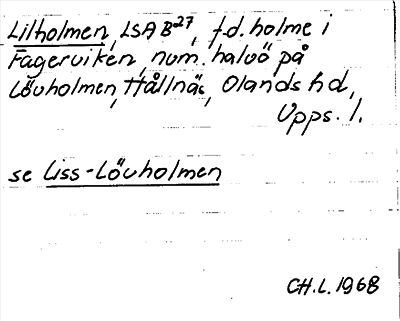 Lilholmen, LSA B27, f.d. holme i
Fagerviken, num. halvö på
Lövholmen, Hållnäs, Olands hd,
Upps. l.
se Liss-Lövholmen
CH.L. 1968